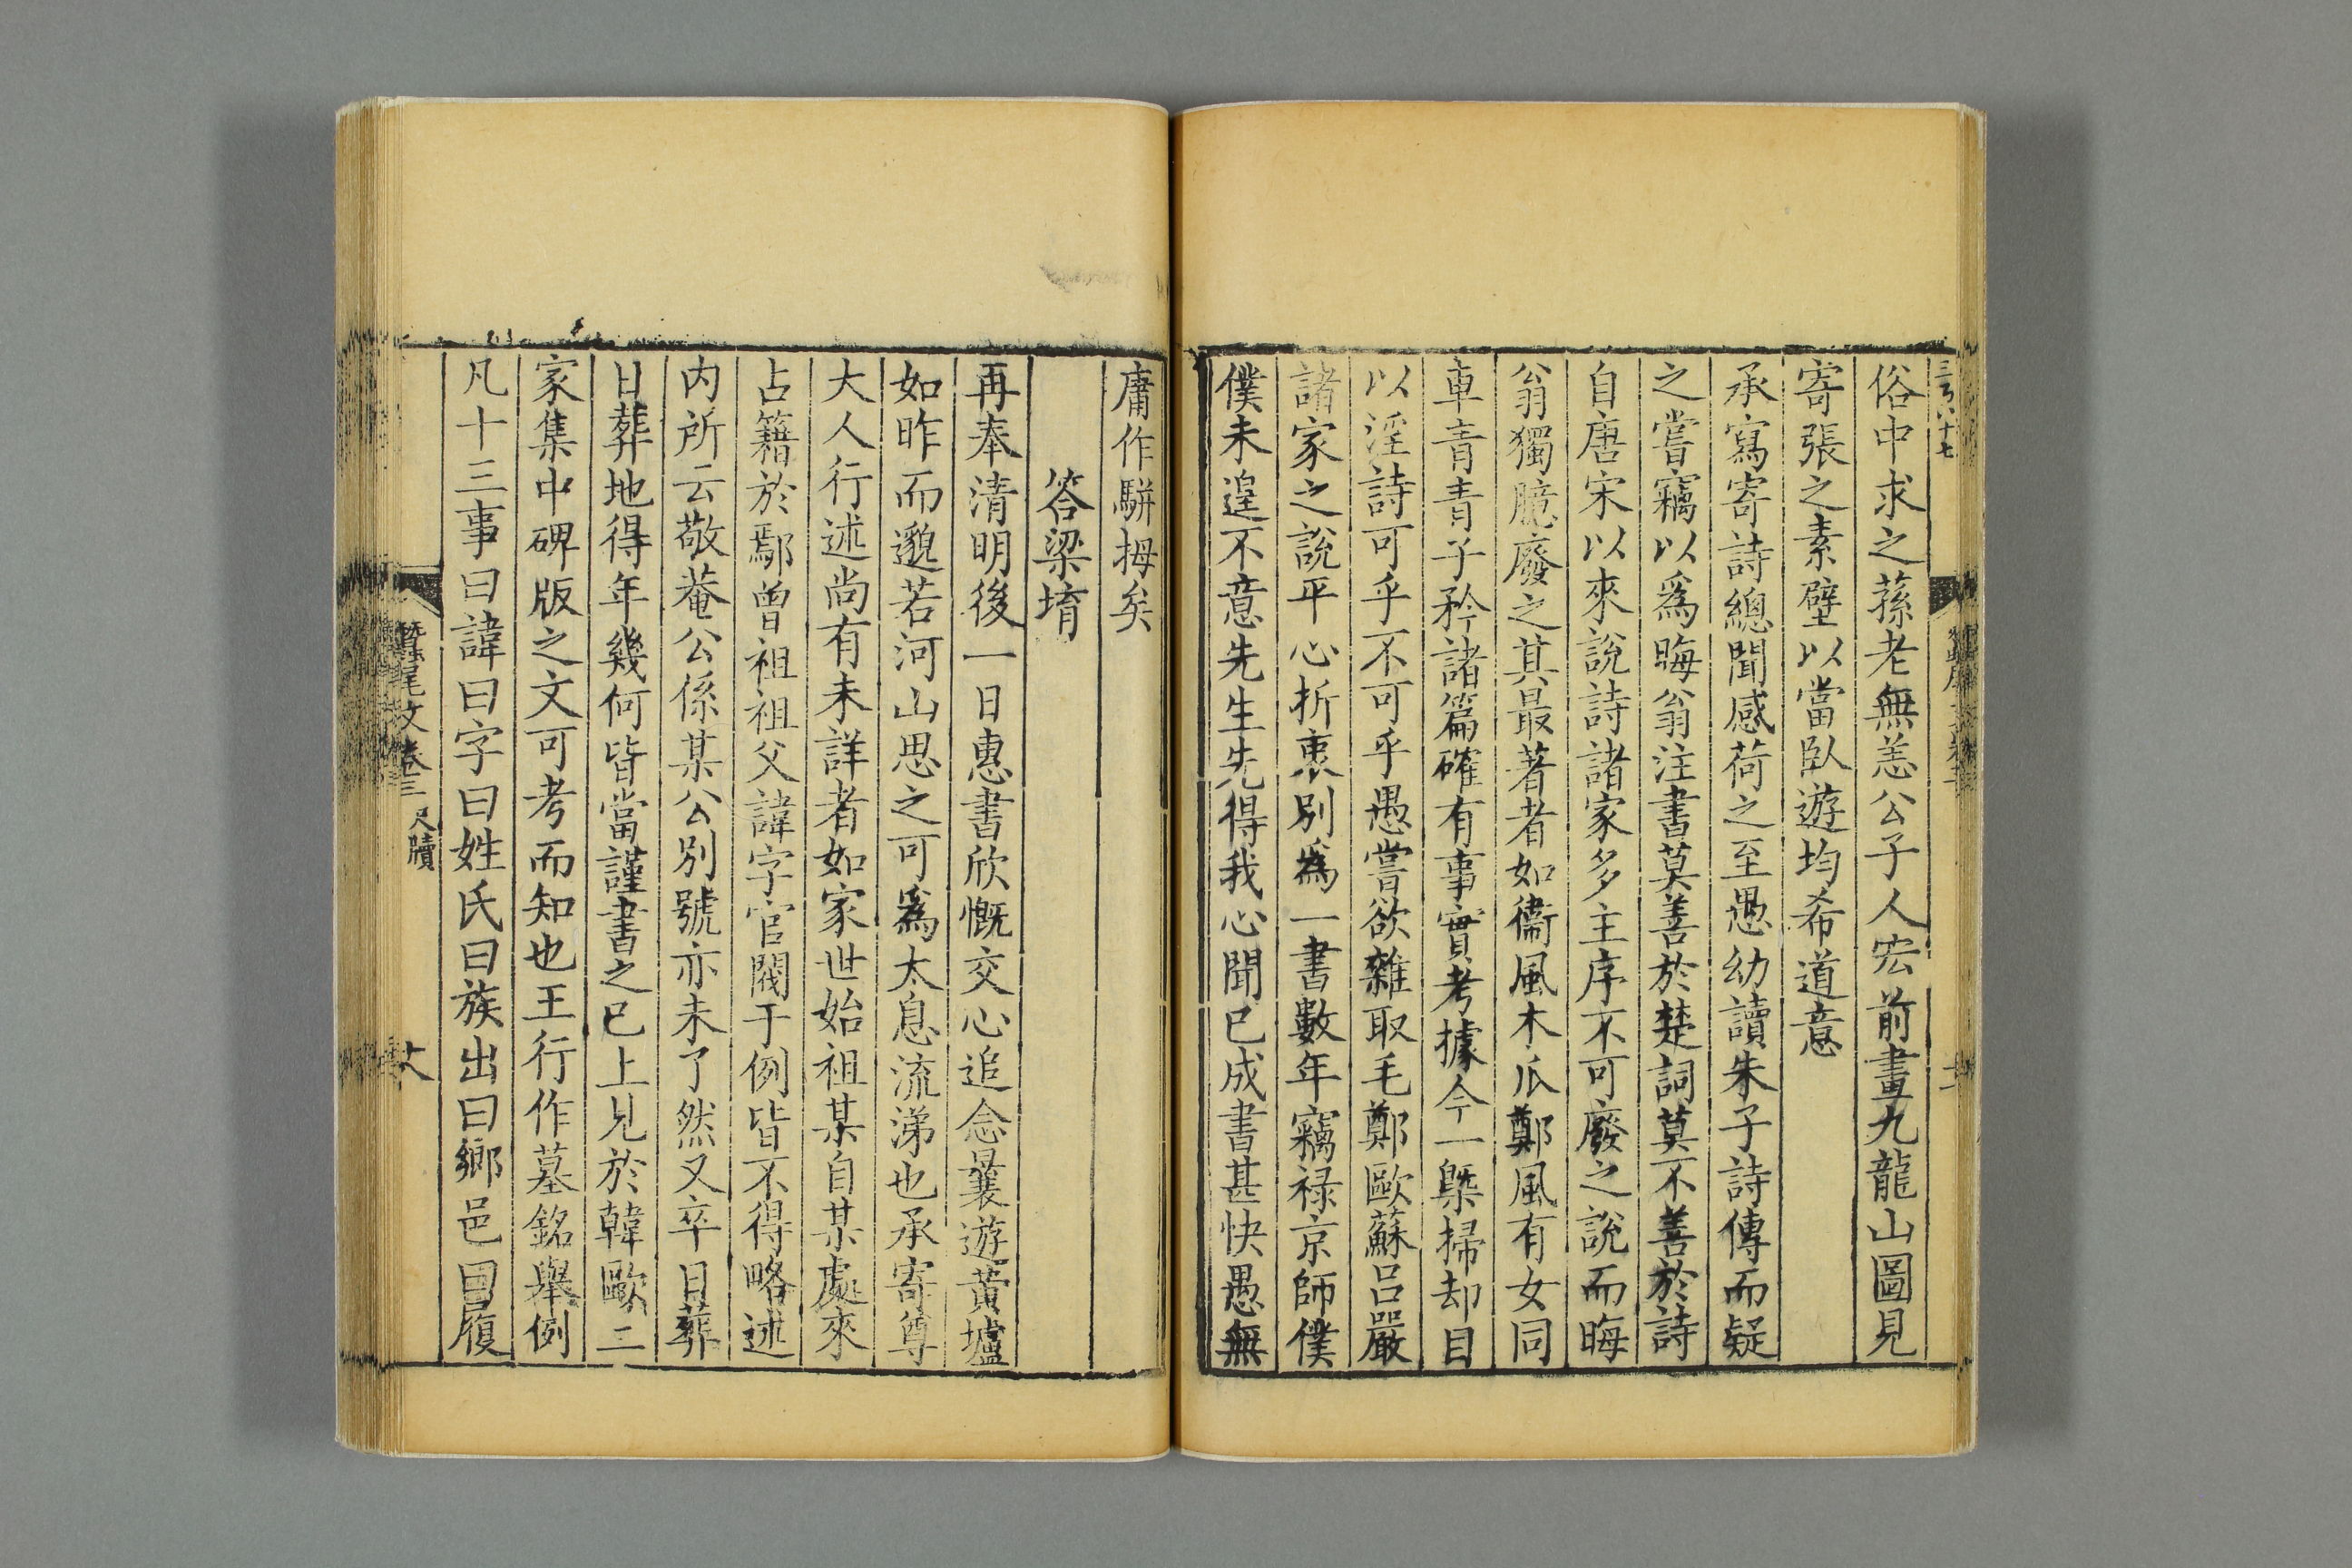 俗中求之蓀老無恙公子人宏前畫九龍山圖見
寄張之素壁以當臥遊均希道意
承寫寄詩總聞感荷之至愚幼讀朱子詩傳而疑
之嘗竊以爲晦翁注書莫善於楚詞莫不善於詩
自唐宋以來說詩諸家多主序不可廢之說而晦
翁獨臆廢之其最著者如衞風木瓜鄭風有女同
車青青子矜諸篇確有事實考據今一槩掃却目
以淫詩可乎不可乎愚嘗欲雜取毛鄭歐蘇呂嚴
諸家之說平心折衷別爲一書數年竊禄京師僕
僕未遑不意先生先得我心聞已成書甚快愚無
庸作駢拇矣
答梁堉
再奉清明後一日惠書欣慨交心追念曩遊黃壚
如昨而邈若河山思之可爲太息流涕也承寄尊
大人行述尚有未詳者如家世始祖某自某處來
占籍於鄢曾祖祖父諱字官閥于例皆不得略述
内所云敬菴公係某公別號亦未了然又卒日葬
日葬地得年幾何皆當謹書之已上見於韓歐二
家集中碑版之文可考而知也王行作墓銘舉例
凡十三事曰諱曰字曰姓氏曰族出曰鄉邑曰履
蠶尾文卷三
尺牘